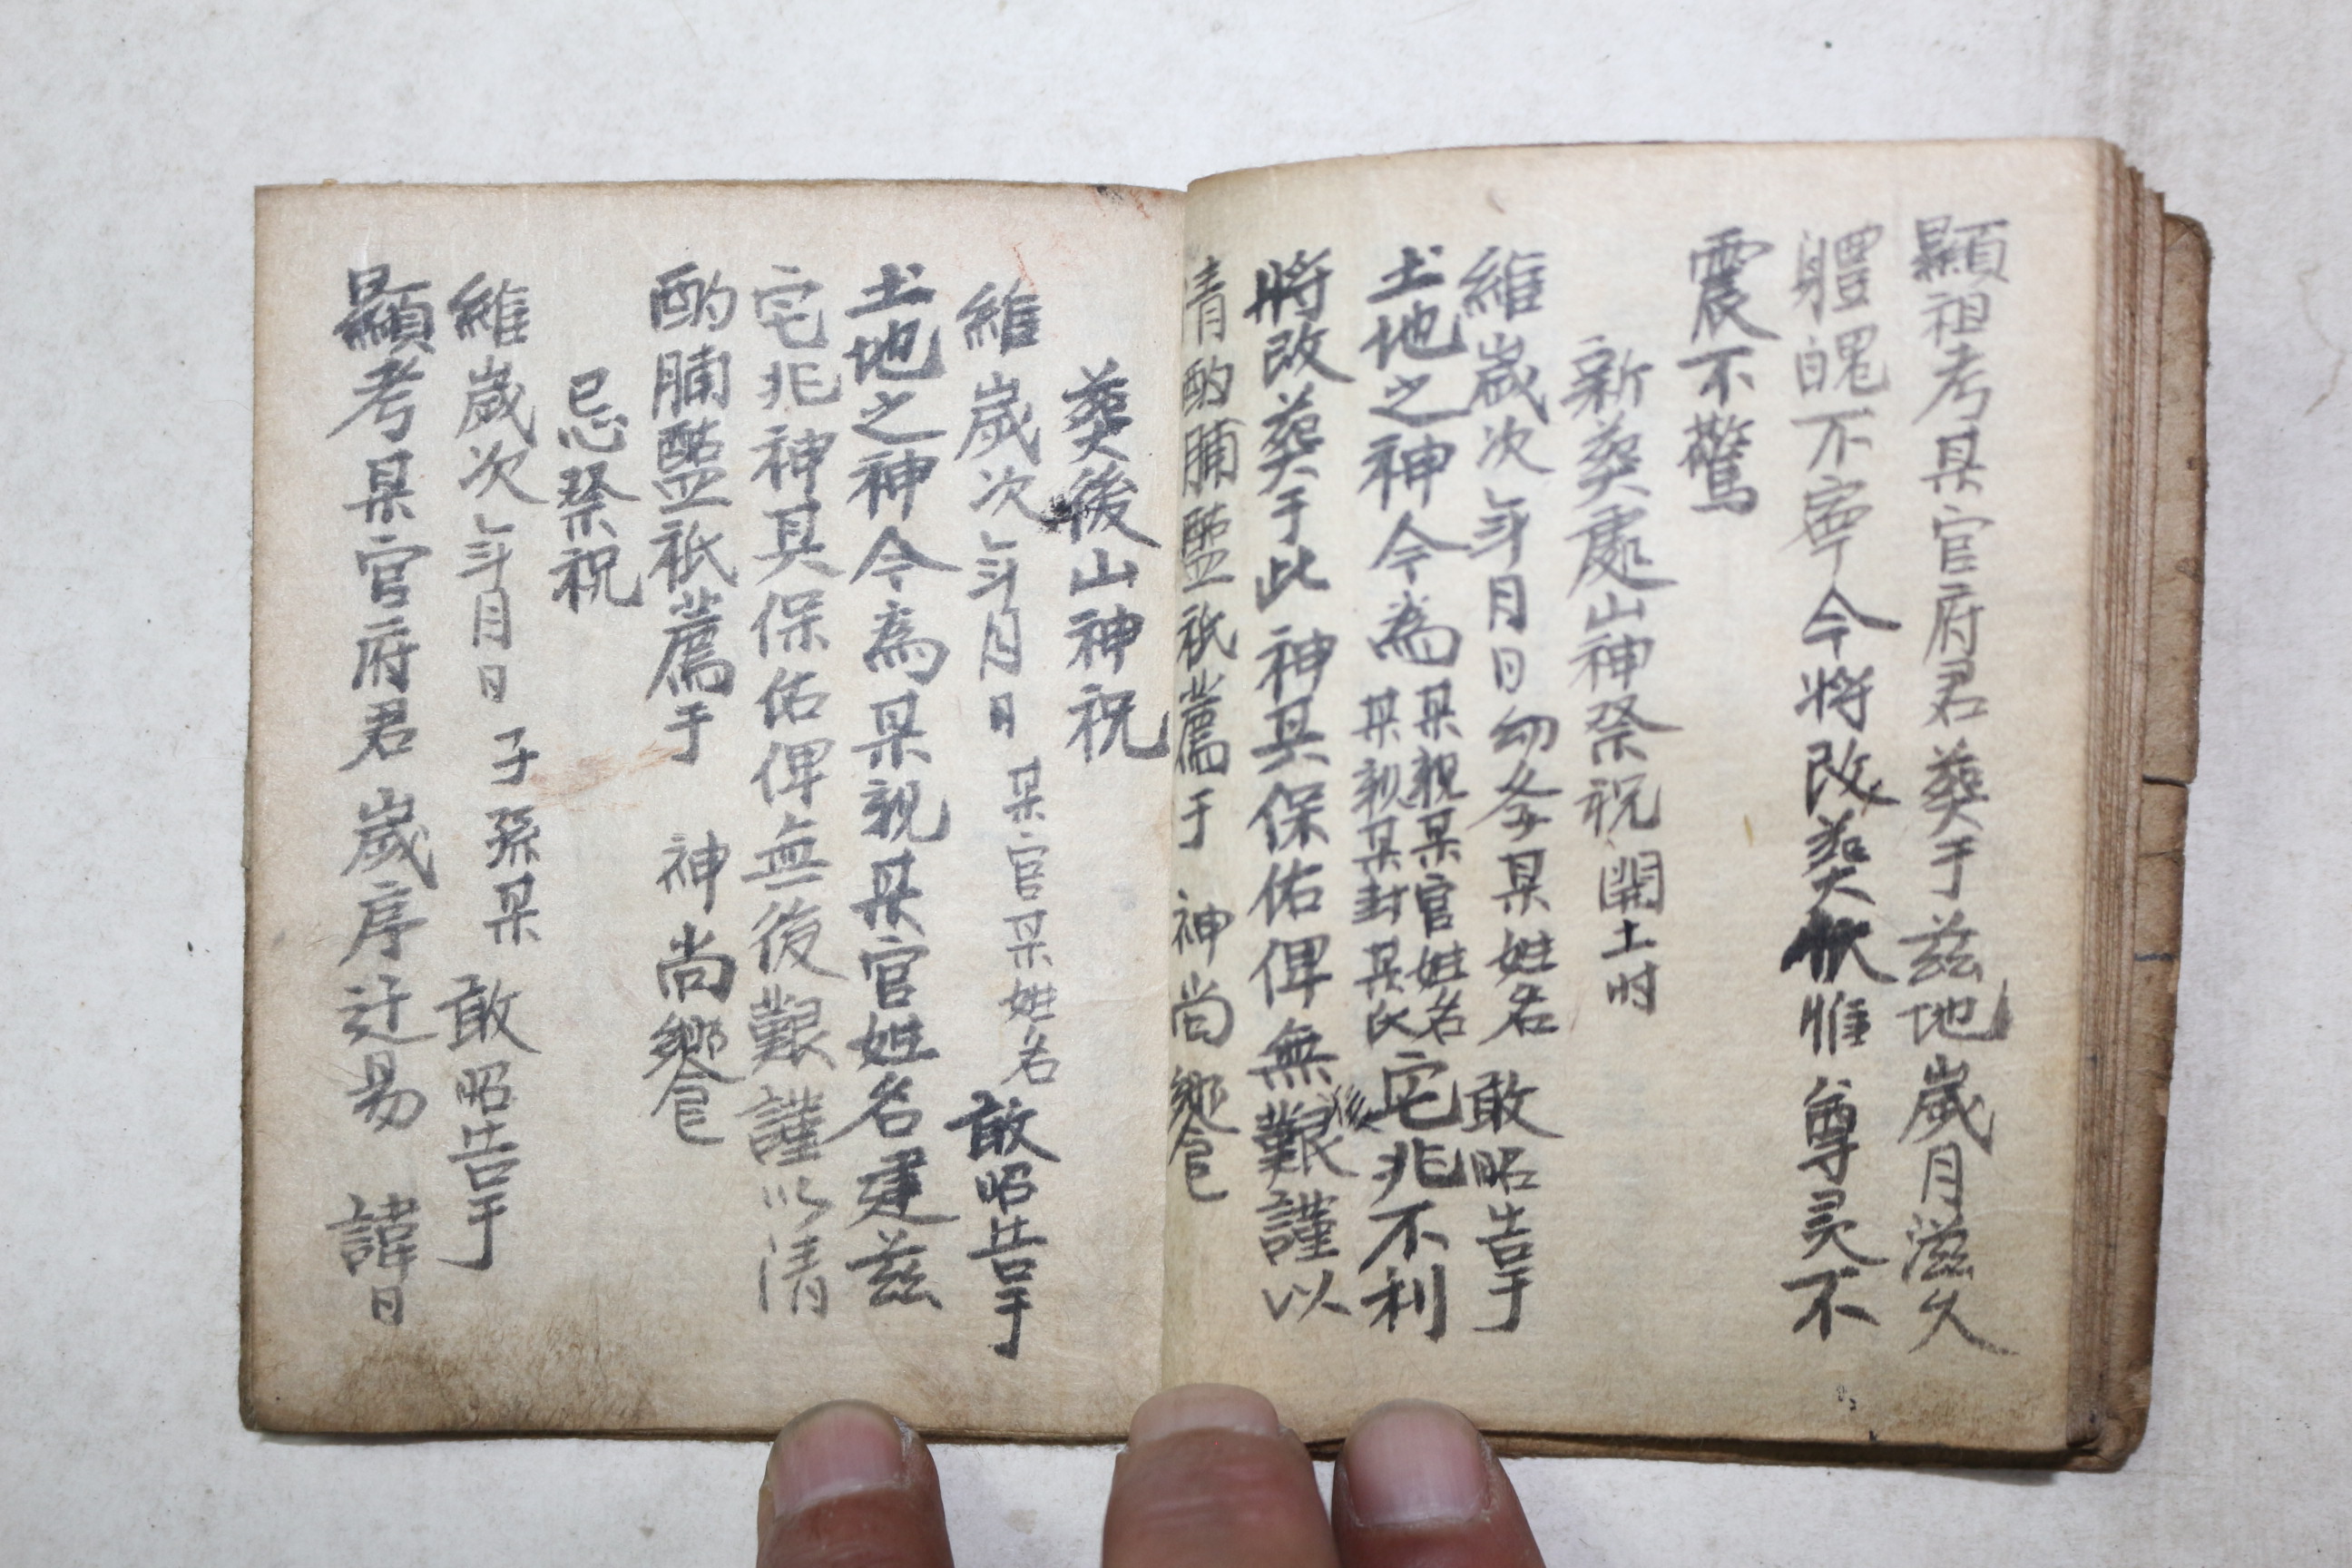 顯祖考某官府君葬于玆地歲月滋久
體魄不寧今將改葬伏惟尊灵不
震不驚
新葬處山神祭祝開土时
維歲次年月日幼多某姓名敢昭告于
土地之神今為某親某官姓名某親某封某氏宅兆不利
將改葬于此神其保佑俾無後艱謹以
淸酌脯醢祇薦于神尙饗
葬後山神祝
維歲次年月日某官某姓名敢昭告于
土地之神今為某親某官姓名建玆
宅兆神其保佑俾無後艱謹以淸
酌脯醢祇薦于神尙饗
忌祭祝
維歲次年月日子孫某敢昭告于
顯考某官府君歲序迁易諱日